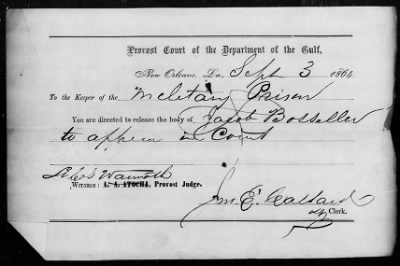 Provost Court of the Department of the Gulf,
New Orleans, La., Sept 3 1864.
To the Keeper of the Miletary Prison
You are directed to release the body of Jacob Bosseller
to appear in Court
Warmoth
Witness: A. A. ATOCHA, Provost Judge.
Jm. E.
Clerk.